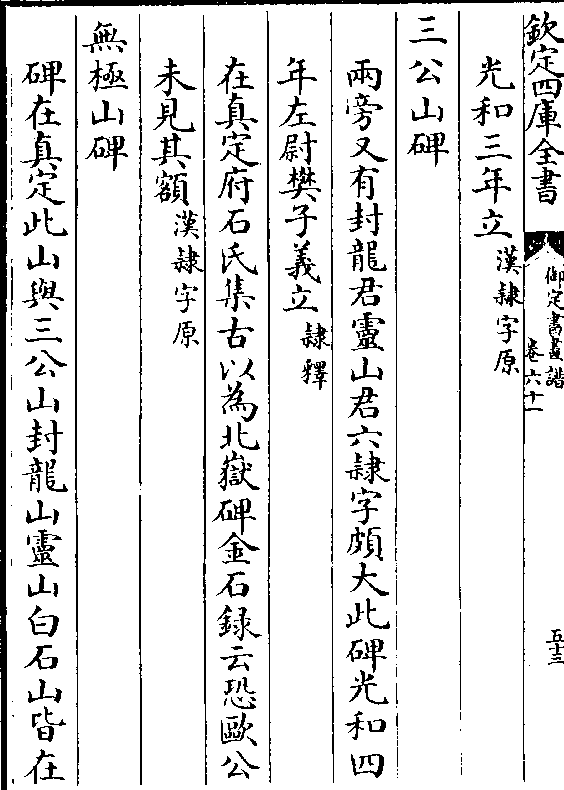 欽定四庫全書
御定書畫譜
卷六十一
五十三
光和三年立漢隷字原
三公山碑
兩旁又有封龍君靈山君六隷字頗大此碑光和四
年左尉樊子義立隷釋
在真定府石氏集古以為北嶽碑金石録云恐歐公
未見其額漢隷字原
無極山碑
碑在真定此山與三公山封龍山靈山白石山皆在